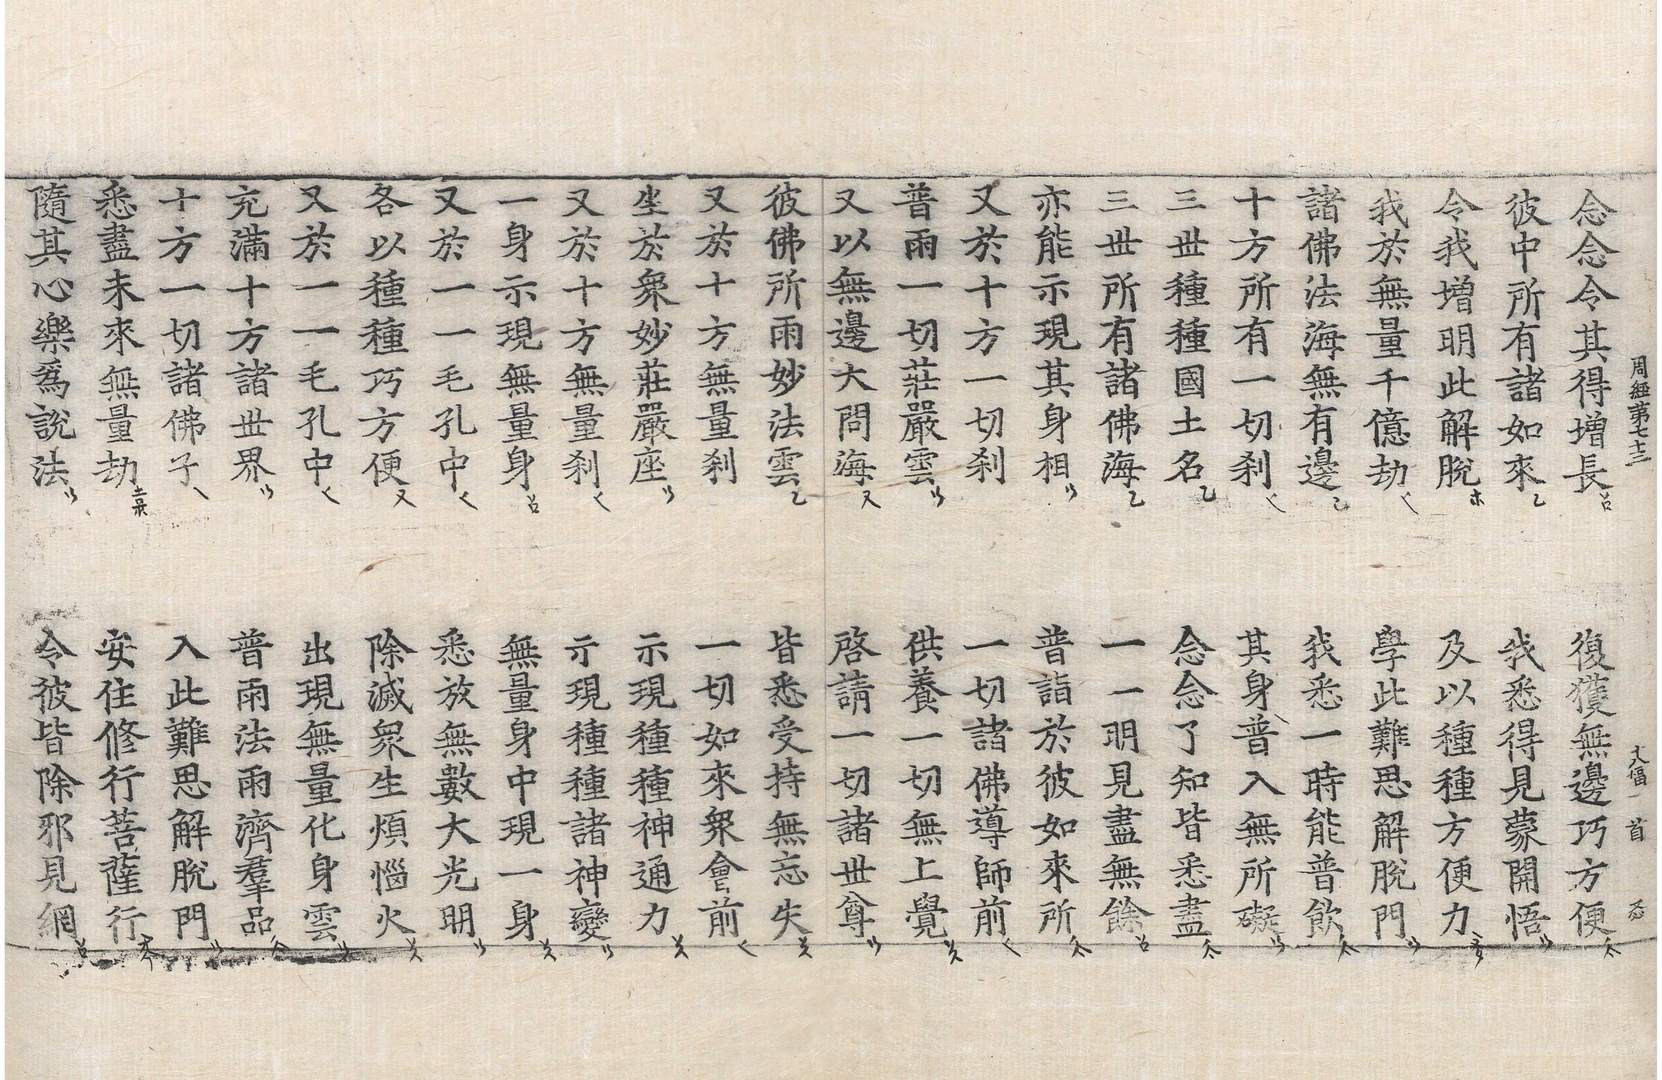 周經第七十三
念念令其得增長 復獲無邊巧方便
彼中所有諸如來 我悉得見蒙開悟
令我增明此解脫 及以種種方便力
我於無量千億劫 學此難思解脫門
諸佛法海無有邊 我悉一時能普飮
十方所有一切刹 其身普入無所礙
三世種種國土名 念念了知皆悉盡
三世所有諸佛海 一一明見盡無餘
亦能示現其身相 普詣於彼如來所
又於十方一切刹 一切諸佛導師前
普雨一切莊嚴雲 供養一切無上覺
又以無邊大問海 啓請一切諸世尊
彼佛所雨妙法雲 皆悉受持無忘失
又於十方無量刹 一切如來衆會前
坐於衆妙莊嚴座 示現種種神通力
又於十方無量刹 示現種種諸神變
一身示現無量身 無量身中現一身
又於一一毛孔中 悉放無數大光明
各以種種巧方便 除滅衆生煩惱火
又於一一毛孔中 出現無量化身雲
充滿十方諸世界 普雨法雨濟羣品
十方一切諸佛子 入此難思解脫門
悉盡未來無量劫 安住修行菩薩行
隨其心樂爲說法 令彼皆除邪見網